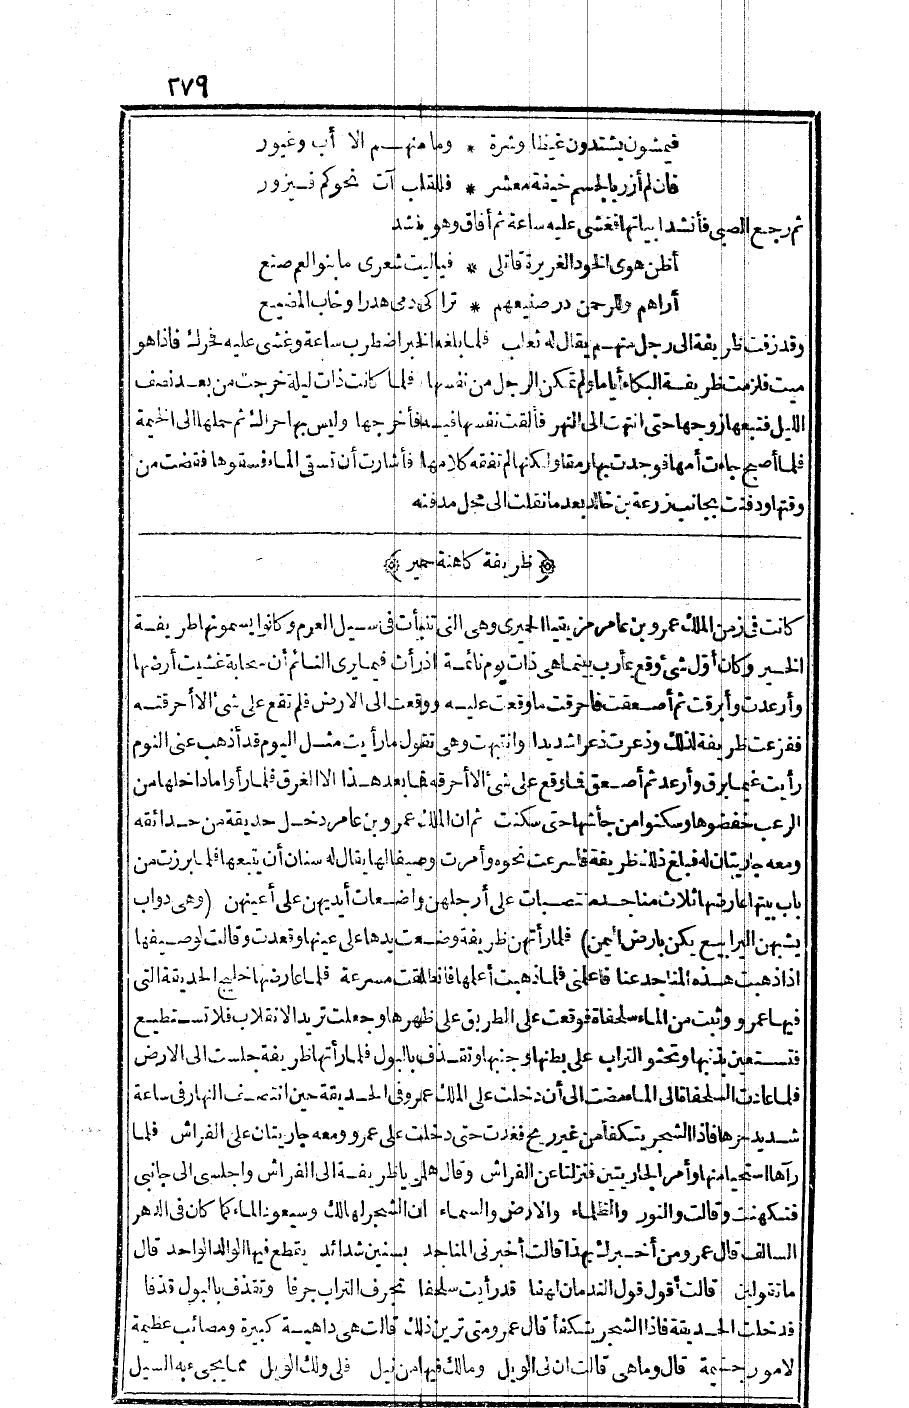 ٢٧٩
فيمشون يشتدون غيظا وشرة * وما منهم الا أب وغيور
فان لم أزر بالجسم خيفة معشر * فللقلب آت نحوكم فيزور
ثم رجع الصبي فأنشد ابياتها فغشى عليه ساعة ثم أفاق وهو ينشد
أظن هوى الخود الغريرة قاتلي * فياليت شعرى ما بنو العم صنع
أراهم وللرحمن در صنيعهم * تراكى دمى هدرا وخاب المضيع
وقد زفت ظريفة الى رجل منهم يقال له ثعلب فلما بلغه الخبر اضطرب ساعة وغشى عليه فحرك فاذا هو
ميت فلزمت ظريفة البكاء أياما ولم تمكن الرجل من نفسها فلما كانت ذات ليلة خرجت من بعد نصف
الليل فتبعها زوجها حتى انتهت الى النهر فألقت نفسها فيه فأخرجها وليس بها حراك ثم حملها الى الخيمة
فلما أصبح جاءت أمها فوجدت بها رمقا ولكنها لم تفقه كلامها فأشارت أن تسقى الماء فسقوها فقضت من
وقتها ودفنت بجانب زرعة بن خالد بعد ما نقلت الى محل مدفنه
﴿ ظريفة كاهنة حمير ﴾
كانت فى زمن الملك عمرو بن عامر مزيقيا الحميرى وهى التى تنبأت فى سيل العرم وكانوا يسمونها ظريفة
الخير وكان أول شئ وقع بمأرب بينما هى ذات يوم نائمة اذ رأت فيما يرى النائم أن سحابة غشيت أرضها
وأرعدت وأبرقت ثم أصعقت فاحرقت ما وقعت عليه ووقعت الى الارض فلم تقع على شئ الا أحرقته
ففزعت ظريفة لذلك وذعرت ذعرا شديدا وانتبهت وهى تقول ما رأيت مثل اليوم قد أذهب عنى النوم
رأيت غيما برق وأرعد ثم أصعق فما وقع على شئ الا أحرقه فما بعد هذا الا الغرق فلما رأوا ما داخلها من
الرعب خفضوها وسكنوا من جأشها حتى سكنت ثم ان الملك عمرو بن عامر دخل حديقة من حدائقه
ومعه جاريتان له فبلغ ذلك ظريفة فاسرعت نحوه وأمرت وصيفا لها يقال له سنان أن يتبعها فلما برزت من
باب بيتها عارضها ثلاث مناجد منتصبات على أرجلهن واضعات أيديهن على أعينهن (وهى دواب
يشبهن اليرابيع يكن بارض اليمن) فلما رأتهن ظريفة وضعت يدها على عينها وقعدت وقالت لوصيفها
اذا ذهبت هذه المناجد عنا فاعلمنى فلما ذهبت أعلمها فانطلقت مسرعة فلما عارضها خليج الحديقة التى
فيها عمرو وثبت من الماء سلحفاة فوقعت على الطريق على ظهرها وجعلت تريد الانقلاب فلا تستطيع
فتستعين بذنبها وتحثو التراب على بطنها وجنبها وتقذف بالبول فلما رأتها ظريفة جلست الى الارض
فلما عادت السلحفاة الى الماء مضت الى أن دخلت على الملك عمرو فى الحديقة حين انتصف النهار فى ساعة
شديد حرها فاذا الشجر يتكفأ من غير ريح فغدت حتى دخلت على عمرو ومعه جاريتان على الفراش فلما
رآها استحيا منها وأمر الجاريتين فنزلتا عن الفراش وقال هلمى يا ظريفة الى الفراش واجلسى الى جانبى
فتكهنت وقالت والنور والظلماء والارض والسماء ان الشجر لهالك وسيعود الماء كما كان فى الدهر
السالف قال عمرو ومن أخبرك بهذا قالت أخبرنى المناجد بسنين شدائد يقطع فيها الوالد الواحد قال
ما تقولين قالت أقول قول الندمان لهفا قد رأيت سلحفا تجرف التراب جرفا وتقذف بالبول قذفا
فدخلت الحديقة فاذا الشجر يتكفأ قال عمرو متى ترين ذلك قالت هى داهية كبيرة ومصائب عظيمة
لامور جسيمة قال وما هى قالت ان لى الويل ومالك فيها من نيل فلى ولك الويل مما يجىء به السيل